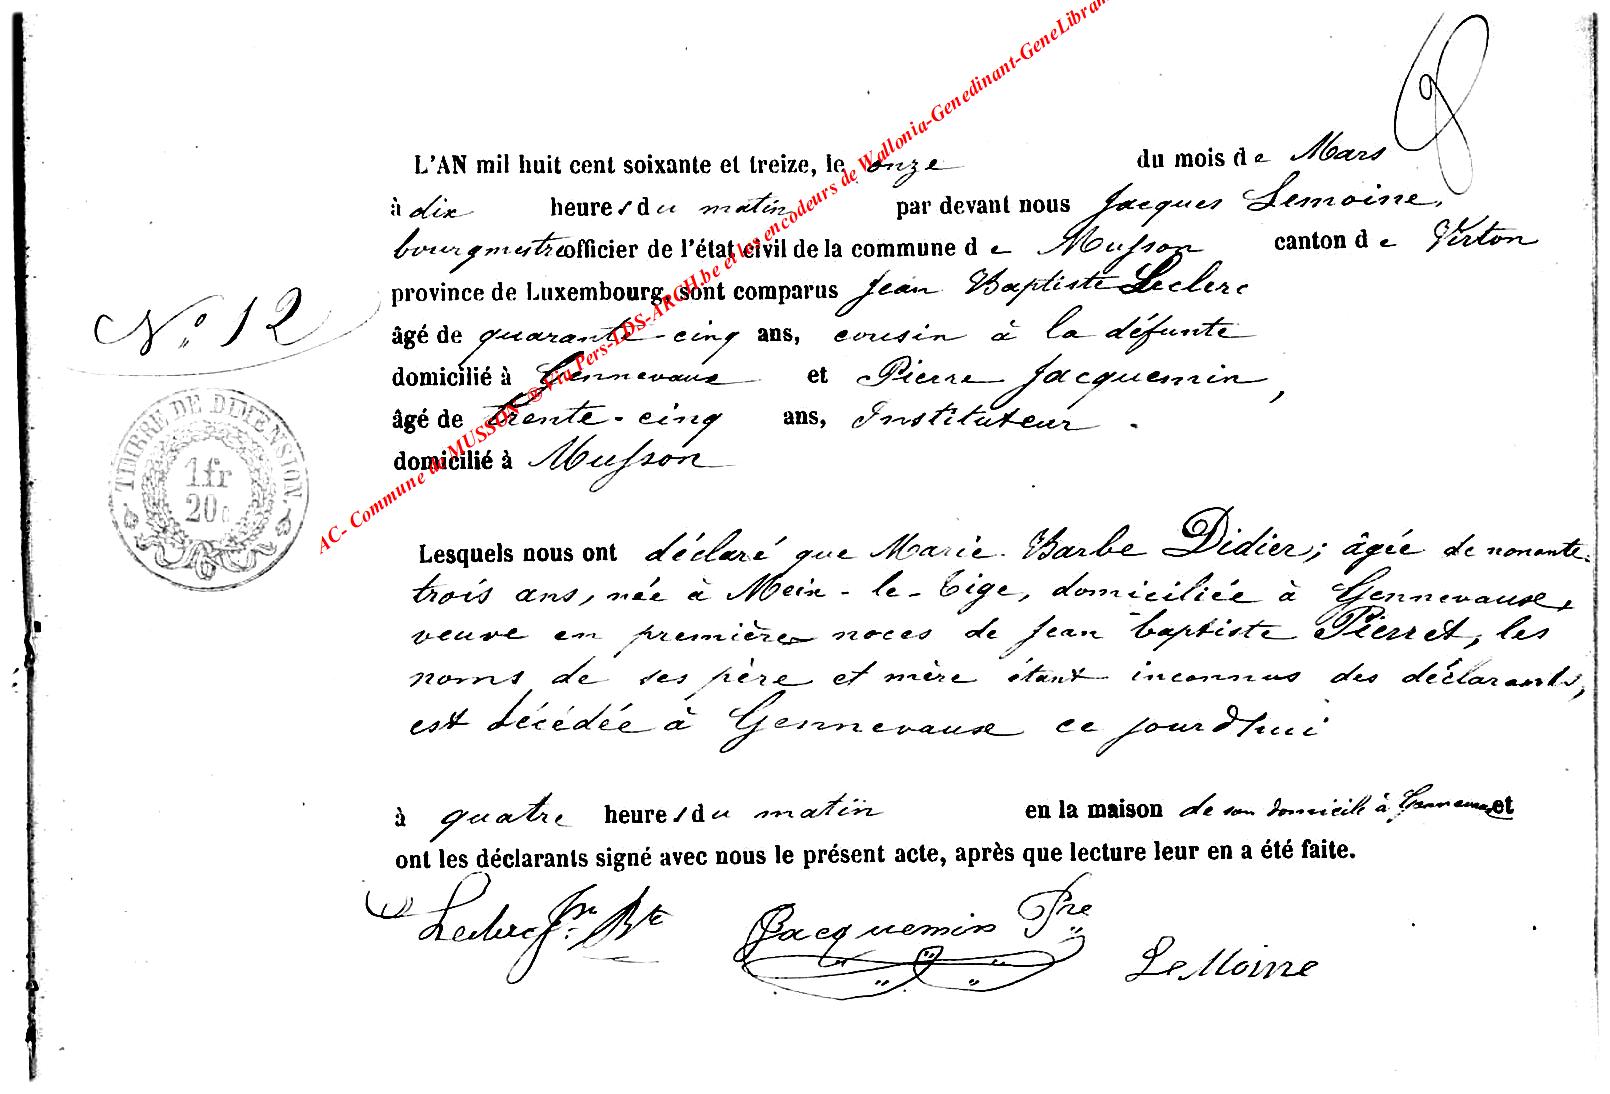 L'AN mil huit cent soixante et treize, le onze du mois de Mars
à dix heures du matin par devant nous Jacques Lemoine,
bourgmestre officier de l'état civil de la commune de Musson canton de Virton
province de Luxembourg, sont comparus Jean Baptiste Leclerc
âgé de quarante-cinq ans, cousin à la défunte
domicilié à Gennevaux et Pierre Jacquemin,
âgé de trente-cinq ans, Instituteur
domicilié à Musson
N° 12
TIMBRE DE DIMENSION.
1 fr
20 c
AC- Commune de MUSSON ® Via Pers-LDS-ARCH.be et les encodeurs de Wallonia-Genedinant-GeneLibram
Lesquels nous ont déclaré que Marie Barbe Didier; âgée de nonante-
trois ans, née à Meix-le-Tige, domiciliée à Gennevaux,
veuve en première noces de Jean baptiste Pierret, les
noms de ses père et mère étant inconnus des déclarants,
est décédée à Gennevaux ce jourd'hui
à quatre heures du matin en la maison de son domicile à Gennevaux et
ont les déclarants signé avec nous le présent acte, après que lecture leur en a été faite.
Leclerc Jn Bte Jacquemin Pre
LeMoine